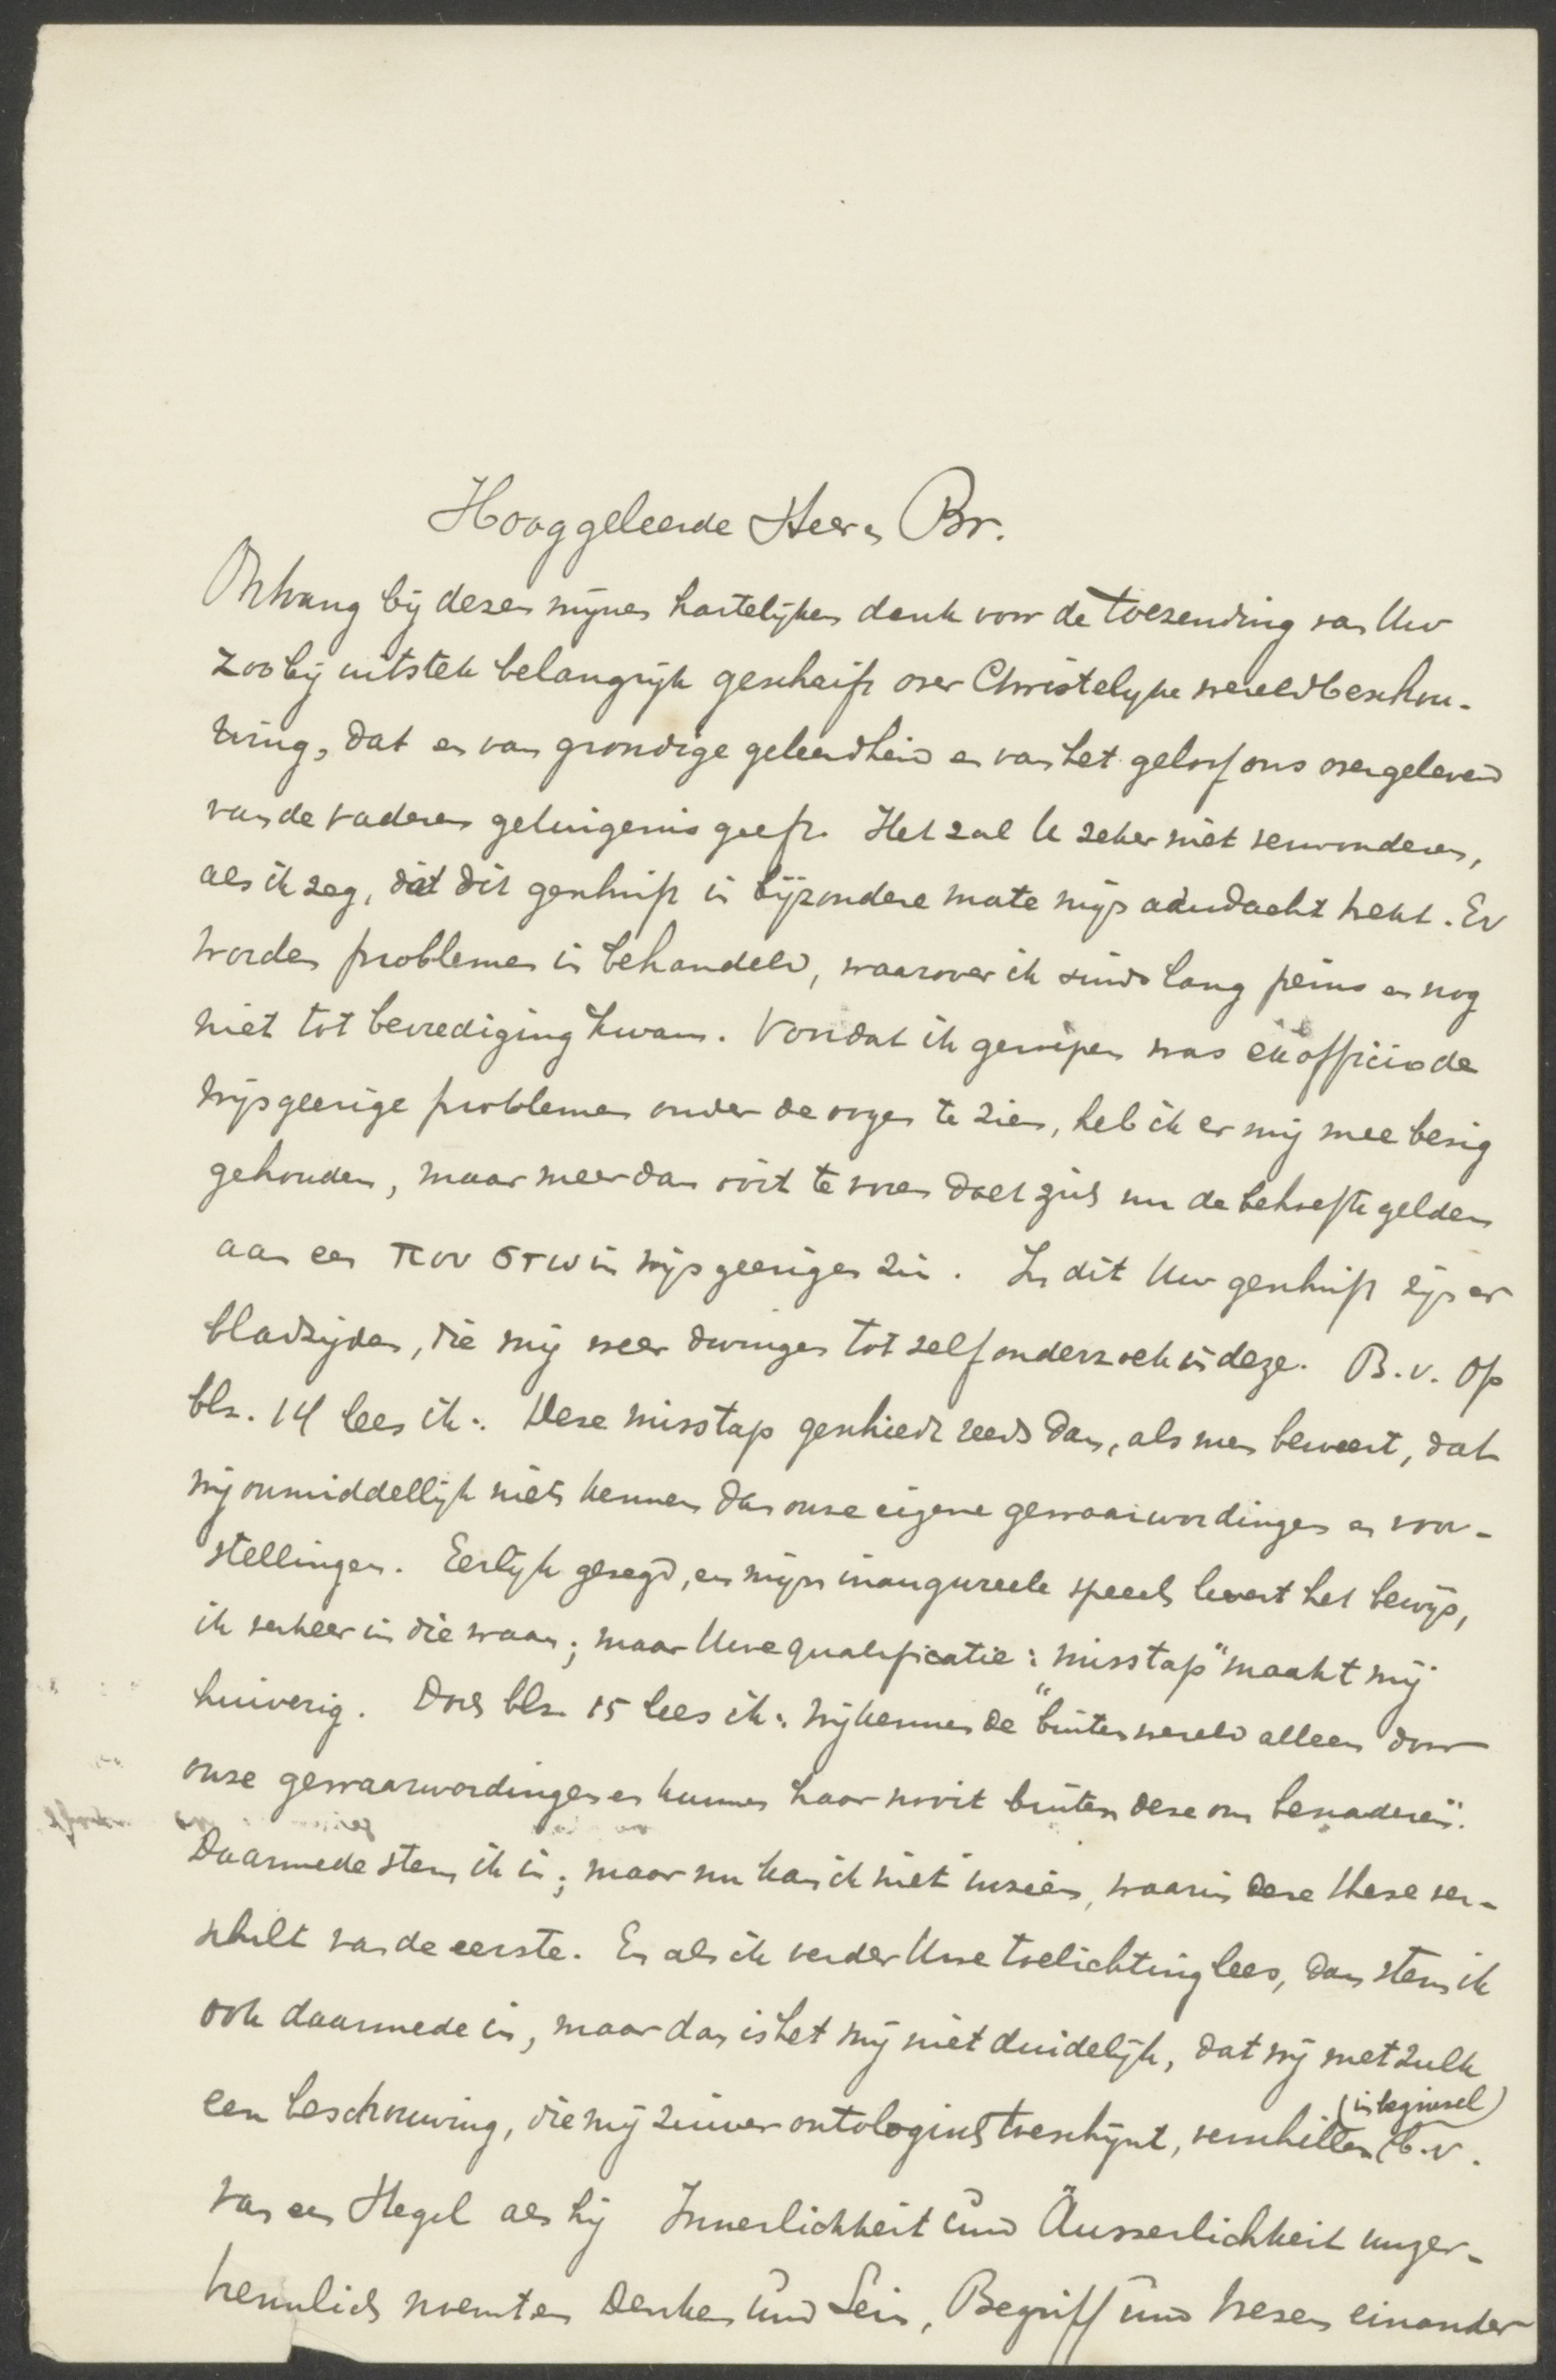 Hooggeleerde Heer en Br.
Ontvang bij dezen mijnen hartelijken dank voor de toezending van Uw
zoo bij uitstek belangrijk geschrift over Christelijke wereldbeschou-
wing, dat en van grondige geleerdheid en van het geloof ons overgeleverd
van de vaderen getuigenis geeft. Het zal U zeker niet verwonderen,
als ik zeg, dat dit geschrift in bijzondere mate mijn aandacht trekt. Er
worden problemen in behandeld, waarover ik sinds lang peins en nog
niet tot bevrediging kwam. Voordat ik geroepen was ex officio de
wijsgeerige problemen onder de oogen te zien, heb ik er mij mee bezig
gehouden, maar meer dan ooit te voren doet zich nu de behoefte gelden
aan een που στω in wijsgeerigen zin. In dit Uw geschrift zijn er
bladzijden, die mij weer dwingen tot zelfonderzoek in deze. B.v. Op
blz. 14 lees ik: Deze misstap geschiedt reeds dan, als men beweert, dat
wij onmiddellijk niets kennen dan onze eigene gewaarwordingen en voor-
stellingen. Eerlijk gezegd, en mijn inaugureele speech levert het bewijs,
ik verkeer in die waan; maar Uwe qualificatie: misstap" maakt mij
huiverig. Doch blz. 15 lees ik: wij kennen de "buitenwereld alleen door
onze gewaarwordingen en kunnen haar nooit buiten deze om benaderen".
Daarmede stem ik in; maar nu kan ik niet inzien, waarin deze these ver-
schilt van de eerste. En als ik verder Uwe toelichting lees, dan stem ik
ook daarmede in, maar dan is het mij niet duidelijk, dat wij met zulk
een beschouwing, die mij zuiver ontologisch toeschijnt, verschillen (in beginsel) b.v.
van een Hegel als hij Innerlichkeit und Äusserlichkeit unzer-
trennlich noemt en Denken und Sein, Begriff und Wesen einander